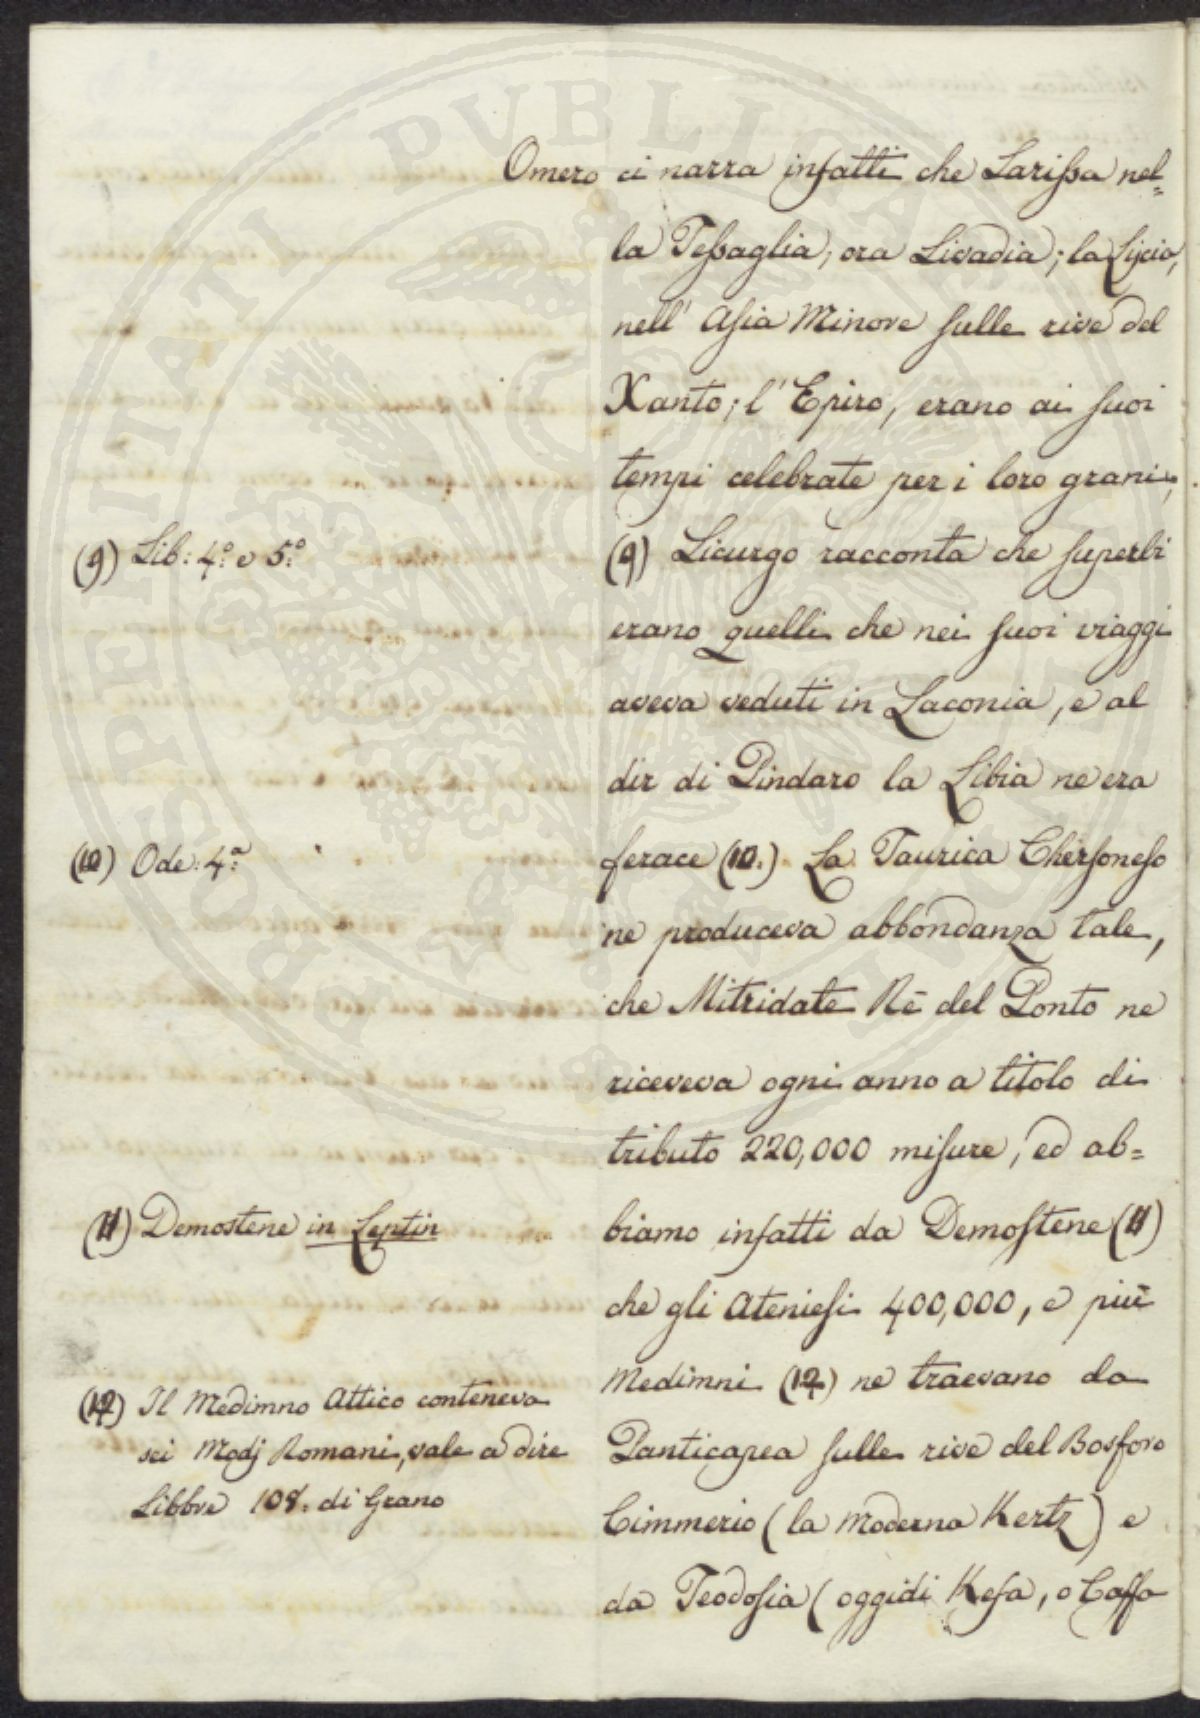 Omero ci narra infatti che Larissa nel=
la Tessaglia, ora Livadia; la Lijcia,
nell' Asia Minore sulle rive del
Xanto; l'Epiro, erano ai suoi
tempi celebrate per i loro grani,
(9) Licurgo racconta che superbi
erano quelli che nei suoi viaggi
aveva veduti in Laconia, e al
dir di Pindaro la Libia ne era
ferace (10.) La Taurica Chersoneso
ne produceva abbondanza tale,
che Mitridate Rè del Ponto ne
riceveva ogni anno a titolo di
tributo 220,000 misure, ed ab=
biamo infatti da Demostene (11)
che gli Ateniesi 400,000, e più
Medimni (12) ne traevano da
Panticapea sulle rive del Bosforo
Cimmerio (la moderna Kertz) e
da Teodosia (oggidi Kefa, o Caffa
(9) Lib: 4.º e 5.º
(10) Ode: 4.ª
(11) Demostene in Leptin
(12) Il Medimno Attico conteneva
sei Modj Romani, vale a dire
Libbre 108. di Grano
PROSPERITATI PUBLICAE